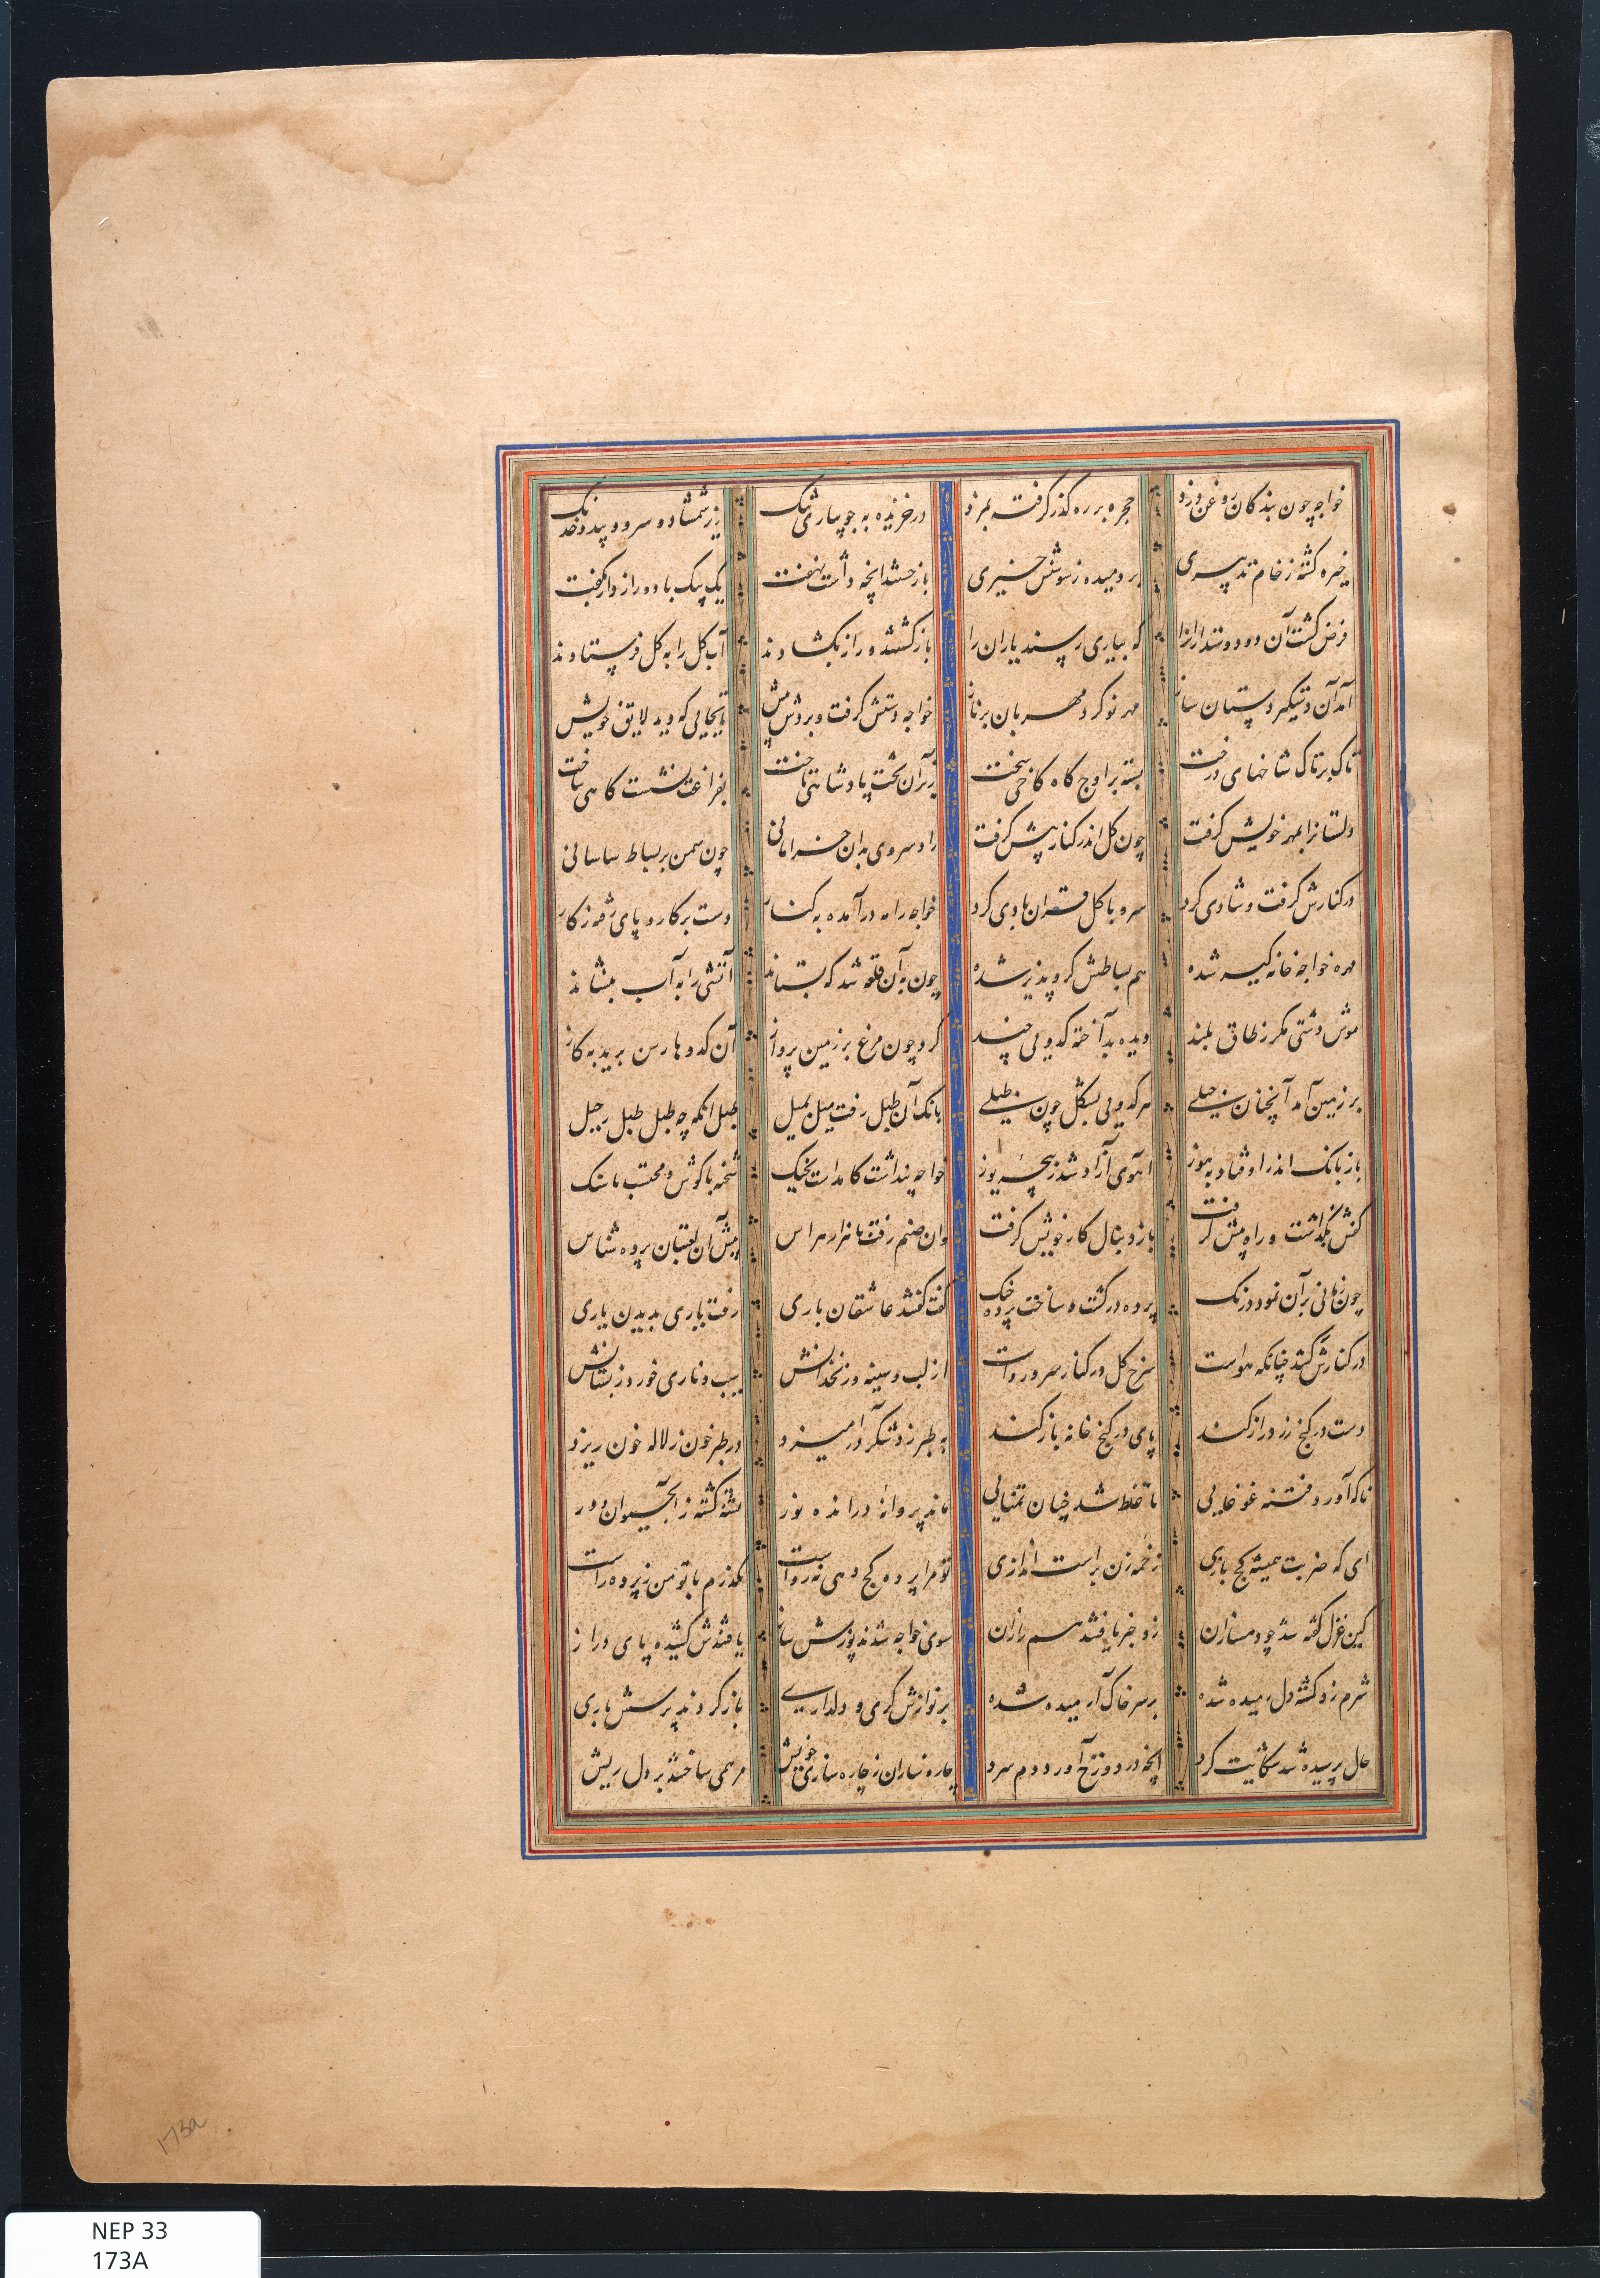 خواجه چون بندکان روغن دزد حجره بر ره کذر کرفت بمزد در خزیده به جویباری تنک زیر شمشاد و سرو و بید و خدنک
خیره کشته ز خام تدبیری بر دمیده ز سوسنش خیری باز جستند آنچه داشت نهفت یک بیک با دو رازدار بگفت
فرض کشت آن دو دوستدارانرا که بیاری رسند یاران را باز کشتند و راز بکشادند آب کل را به کل فرستادند
آمد آن دستکیر دستان ساز مهر نو کرد مهربان بر ناز خواجه دستش کرفت و برد ز پیش تا بجایی که دید لایق خویش
تاک بر تاک شاخهای درخت بسته بر اوج کاه کاخی سخت زیر آن تخت پادشاهی تاخت بفراغت نشست کاهی ساخت
دلستانرا بمهر خویش کرفت چون کل اندر کنار پیش کرفت زاد سروی بدان خرامانی چون سمن بر بساط سامانی
در کنارش کرفت و شادی کرد سرو با کل قران بادی کرد خواجه را مه در آمده به کنار دست بر کار و پای رفته ز کار
مهره خواجه خانه کیر شده هم بساطش کرو پذیر شده چون بر آن قلعه شد که بستاند آتشی را به آب بنشاند
موش دشتی مکر ز طاق بلند دیده بد آخته کدویی چند کرد چون مرغ بر زمین پرواز آن کدوها رسن برید به کاز
بر زمین آمد آنچنان خیلی هر کدویی بشکل چون طبلی بانک آن طبل رفت میل بمیل طبل آنکه چه طبل طبل رحیل
باز بانک اندر اوفتاد به یوز آهوی آزاد شد ز پنجه یوز خواجه پنداشت کامدست بجنک شحنه با کوس و محتسب با سنک
کفش بکذاشت و راه پیش کرفت باز دنبال کار خویش کرفت وان صنم رفت با هزار هراس پیش آن لعبتان پرده شناس
چون زمانی بر آن نمود درنک پرده در کشت و ساخت پرده چنک گفت کفتند عاشقان باری رفت یاری بدیدن یاری
در کنارش کشد چنانکه هواست سرخ کل در کنار سرو رواست از لب و سینه و زنخدانش سیب و ناری خورد ز بستانش
دست در کنج زر دراز کند پای در کنج خانه باز کند به طبرزد شکر در آمیزد در طبرخون ز لاله خون ریزد
ناکه آورد فتنه غوغایی تا غلط شد چنان تمنایی ماند پروانه در انده نور تشنه کشته ز آب حیوان دور
ای که ضربت همیشه کج بازی زخمه زن براست اندازی تو مرا پرده کج دهی نه رواست نکذرم با تو من ز پرده راست
کین غزل کفته شد چو دمسازان زو خبر یافتند هم رازان سوی خواجه شدند پوزش ساز یافتندش کشیده پای دراز
شرم زد کشته دل رمیده شده بر سر خاک آرمیده شده بر نوازش کری و دلداری باز کردند پرسش یاری
حال پرسیده شد حکایت کرد آنچه در دوزخ آورد دم سرد چاره سازان ز چاره سازی خویش مرهمی ساختند بر دل ریش
173a
NEP 33
173A